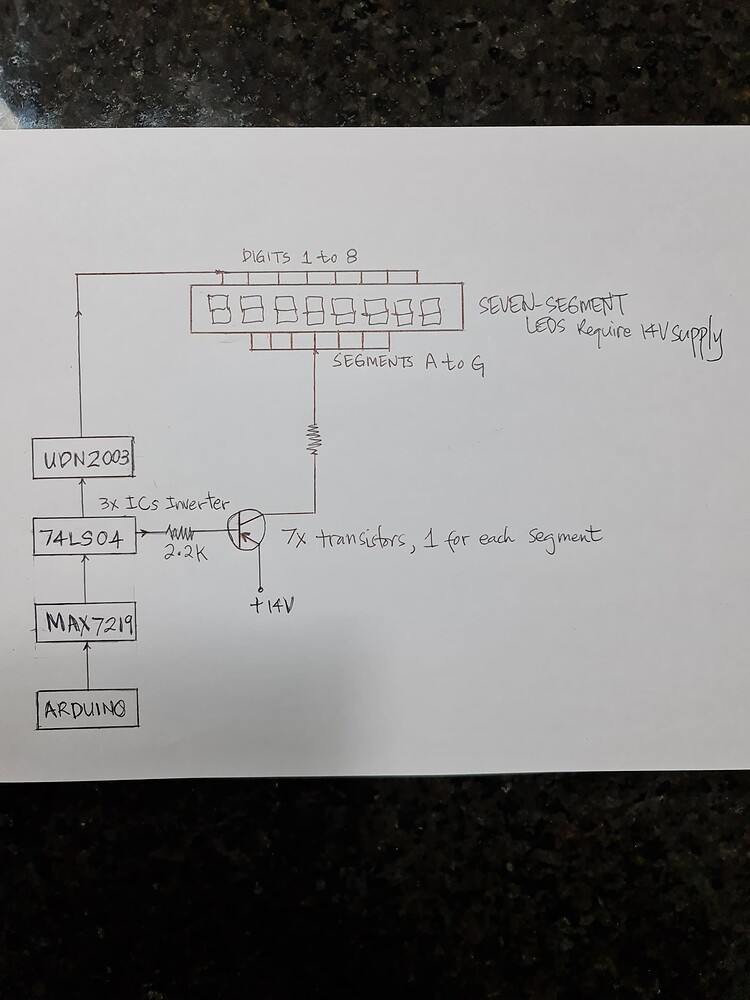 DIGITS 1 to 8
SEVEN-SEGMENT
LEDS Require 14V supply
SEGMENTS A to G
UDN2003
3x ICs Inverter
74LS04
2.2K
7x transistors, 1 for each segment
+14V
MAX7219
ARDUINO